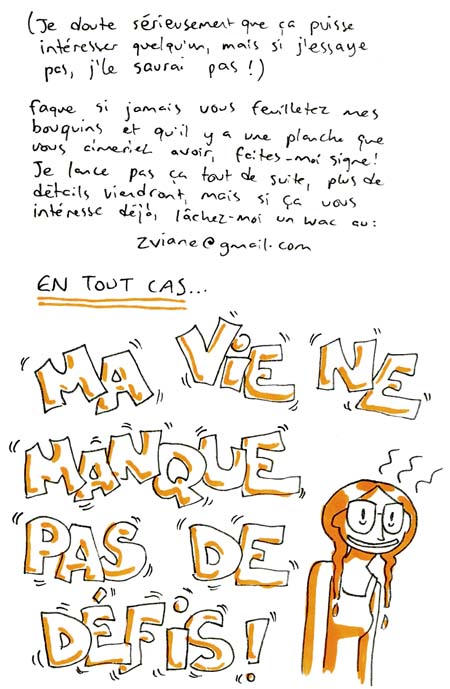 (Je doute sérieusement que ça puisse
intéresser quelqu'un, mais si j'essaye
pas, j'le saurai pas !)
Faque si jamais vous feuilletez mes
bouquins et qu'il y a une planche que
vous aimeriez avoir, faites-moi signe!
Je lance pas ça tout de suite, plus de
détails viendront, mais si ça vous
intéresse déjà, lâchez-moi un wac au:
zviane@gmail.com
EN TOUT CAS...
MA ViE NE
MANQUE
PAS DE
DÉFiS!